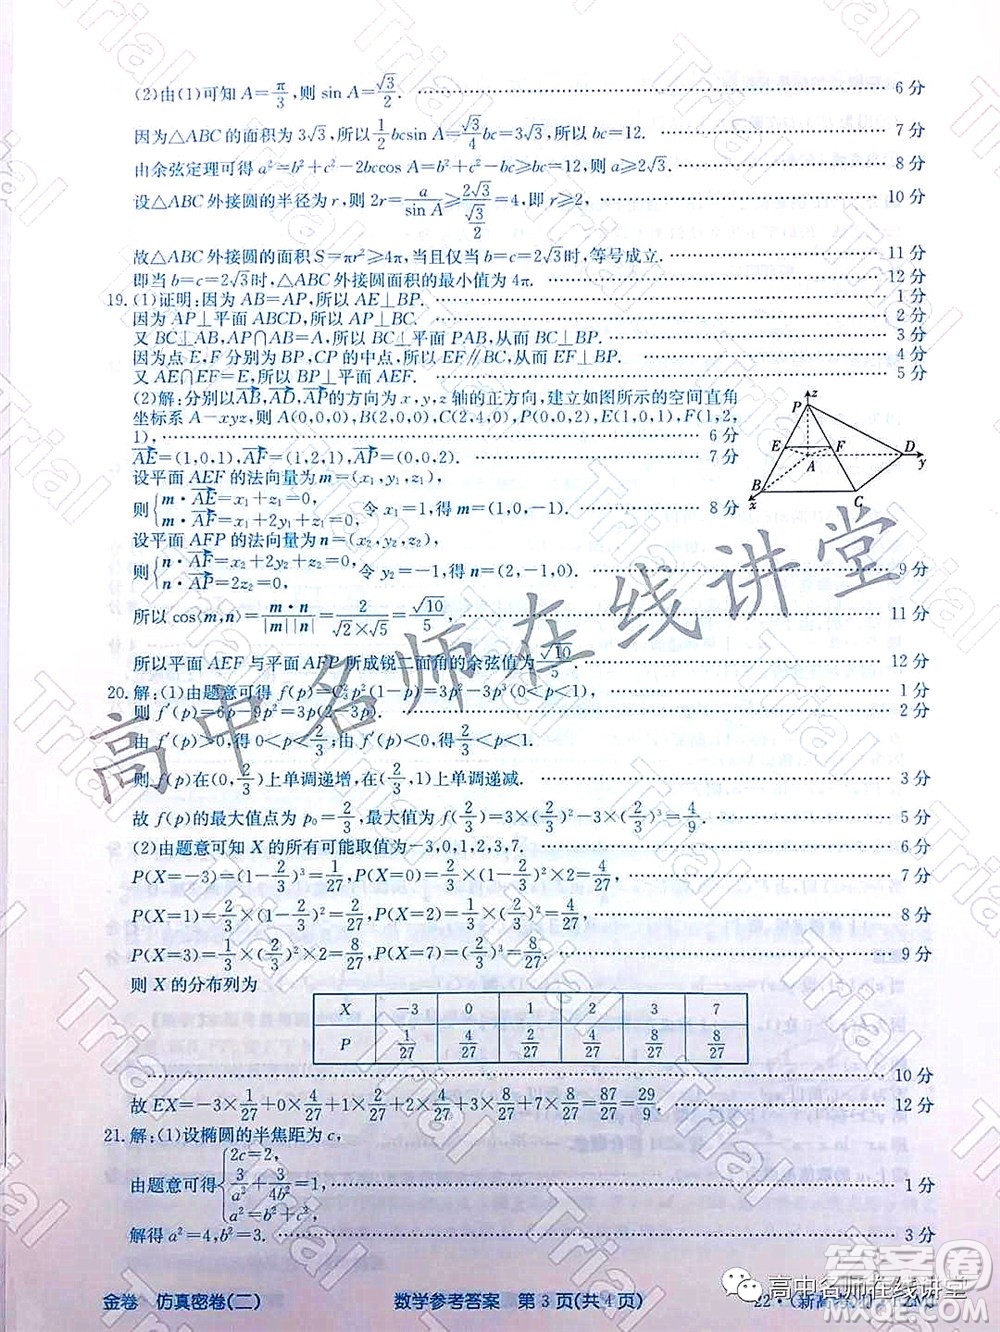 (2)由(1)可知 A=π/3,则 sin A=√3/2. 6分
因为△ABC的面积为3√3,所以1/2 bcsin A=√3/4 bc=3√3,所以 bc=12. 7分
由余弦定理可得 a²=b²+c²-2bccos A=b²+c²-bc≥bc=12,则 a≥2√3. 8分
设△ABC外接圆的半径为 r,则 2r=a/sin A≥2√3/(√3/2)=4,即 r≥2, 10分
故△ABC外接圆的面积 S=πr²≥4π,当且仅当 b=c=2√3时,等号成立. 11分
即当 b=c=2√3时,△ABC外接圆面积的最小值为4π. 12分
19.(1)证明:因为 AB=AP,所以 AE⊥BP. 1分
因为 AP⊥平面 ABCD,所以 AP⊥BC. 2分
又 BC⊥AB,AP∩AB=A,所以 BC⊥平面 PAB,从而 BC⊥BP. 3分
因为点 E,F分别为 BP,CP的中点,所以 EF∥BC,从而 EF⊥BP. 4分
又 AE∩EF=E,所以 BP⊥平面 AEF. 5分
(2)解:分别以AB,AD,AP的方向为 x,y,z轴的正方向,建立如图所示的空间直角
坐标系 A-xyz,则 A(0,0,0),B(2,0,0),C(2,4,0),P(0,0,2),E(1,0,1),F(1,2,
1), 6分
AE=(1,0,1),AF=(1,2,1),AP=(0,0,2). 7分
设平面 AEF的法向量为 m=(x₁,y₁,z₁),
则{m·AE=x₁+z₁=0, m·AF=x₁+2y₁+z₁=0, 令 x₁=1,得 m=(1,0,-1). 8分
设平面 AFP的法向量为 n=(x₂,y₂,z₂),
则{n·AF=x₂+2y₂+z₂=0, n·AP=2z₂=0, 令 y₂=-1,得 n=(2,-1,0). 9分
所以 cos⟨m,n⟩=m·n/|m||n|=2/(√2×√5)=√10/5, 11分
所以平面 AEF与平面 AFP所成锐二面角的余弦值为√10/5. 12分
z
P
E
F
D
A
y
B
x
C
20.解:(1)由题意可得 f(p)=C₃²p²(1-p)=3p²-3p³(0<p<1). 1分
则 f′(p)=6p-9p²=3p(2-3p). 2分
由 f′(p)>0,得0<p<2/3;由 f′(p)<0,得2/3<p<1.
则 f(p)在(0,2/3)上单调递增,在(2/3,1)上单调递减. 3分
故 f(p)的最大值点为 p₀=2/3,最大值 f(2/3)=3×(2/3)²-3×(2/3)³=4/9. 5分
(2)由题意可知 X的所有可能取值为-3,0,1,2,3,7. 6分
P(X=-3)=(1-2/3)³=1/27,P(X=0)=2/3×(1-2/3)×2/3=4/27, 7分
P(X=1)=2/3×(1-2/3)²×2=4/27,P(X=2)=(2/3)²×(1-2/3)=4/27, 8分
P(X=3)=2/3×(1-2/3)²=2/27,P(X=7)=(2/3)³=8/27. 9分
则 X的分布列为
X -3 0 1 2 3 7
P 1/27 4/27 2/27 4/27 8/27 8/27
10分
故 EX=-3×1/27+0×4/27+1×2/27+2×4/27+3×8/27+7×8/27=87/27=29/9. 12分
21.解:(1)设椭圆的半焦距为 c,
由题意可得{2c=2, 3/a²+3/4b²=1, a²=b²+c², 1分
解得 a²=4,b²=3. 3分
金卷 仿真密卷(二) 数学参考答案 第3页(共4页)
高中名师在线讲堂
高中名师在线讲堂
答案圈
Trial